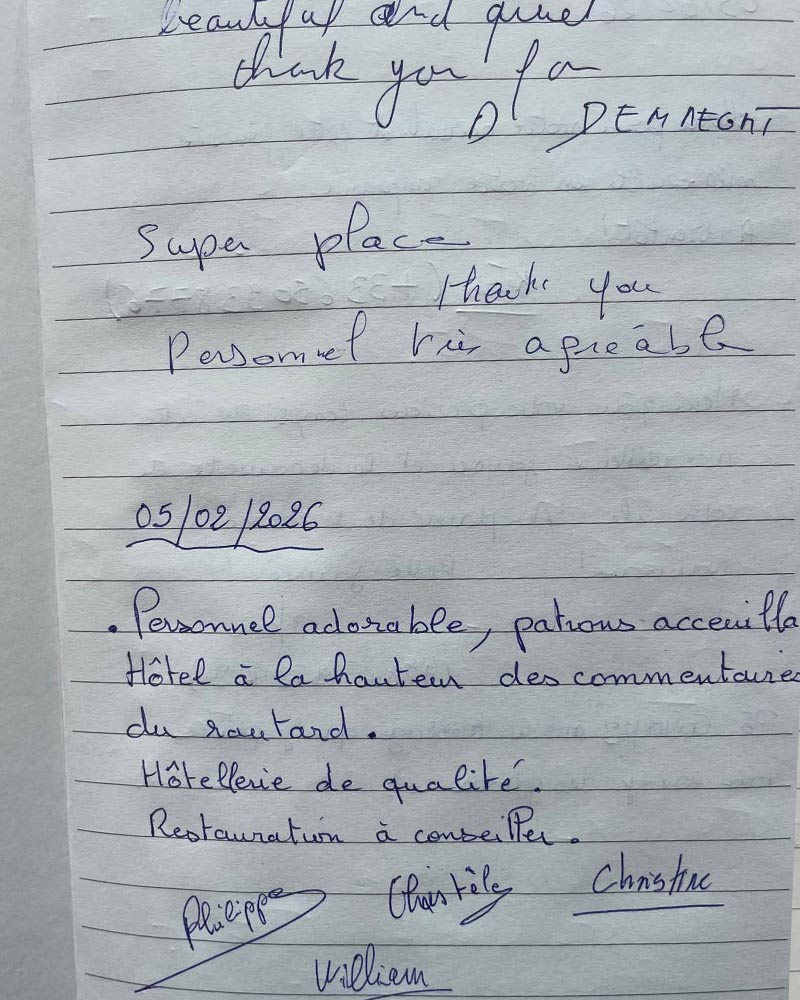 beautiful and quiet
thank you for
D DEMAEGHT
Super place
thank you
Personnel très agréable
05/02/2026
. Personnel adorable, patrons acceuilla
Hôtel à la hauteur des commentaires
du routard.
Hôtellerie de qualité.
Restauration à conseiller.
Philippe Christèle Christine
William